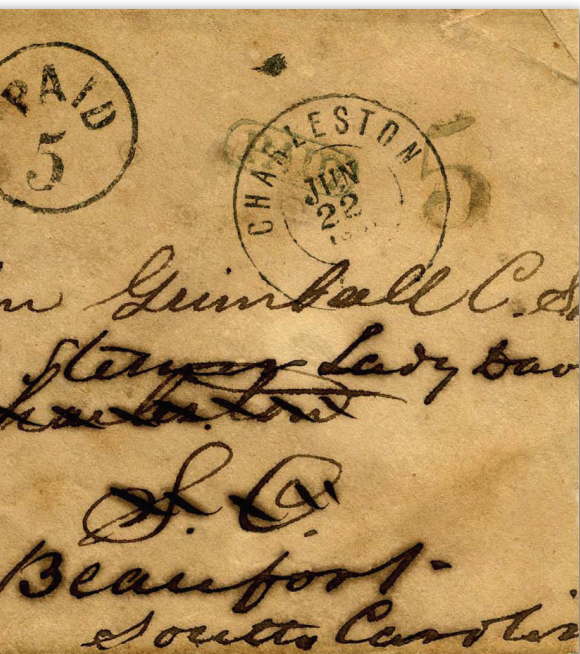 PAID
5
CHARLESTON
JUN
22
5
Grimball C. S.
Steamer Lady Dav
Charleston
S. C.
Beaufort
South Carolin